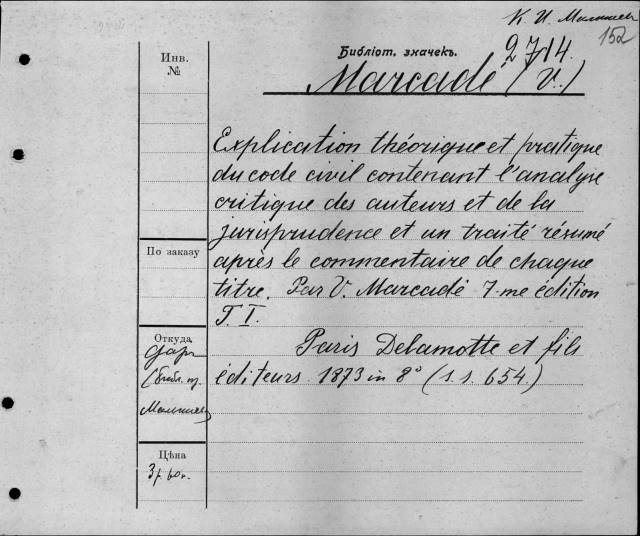 К. И. Малышев
152
Инв.
№
Библіот. значекъ.
2714
Marcadé (V.)
Explication théorique et pratique
du code civil contenant l'analyse
critique des auteurs et de la
jurisprudence et un traité résumé
après le commentaire de chaque
titre. Par V. Marcadé 7-me édition
T. I.
Paris Delamotte et fils
éditeurs. 1873 in 8° (s.s. 654.)
По заказу
Откуда
дар
(библ. пр.
Малышев)
Цѣна
3 р. 60 к.